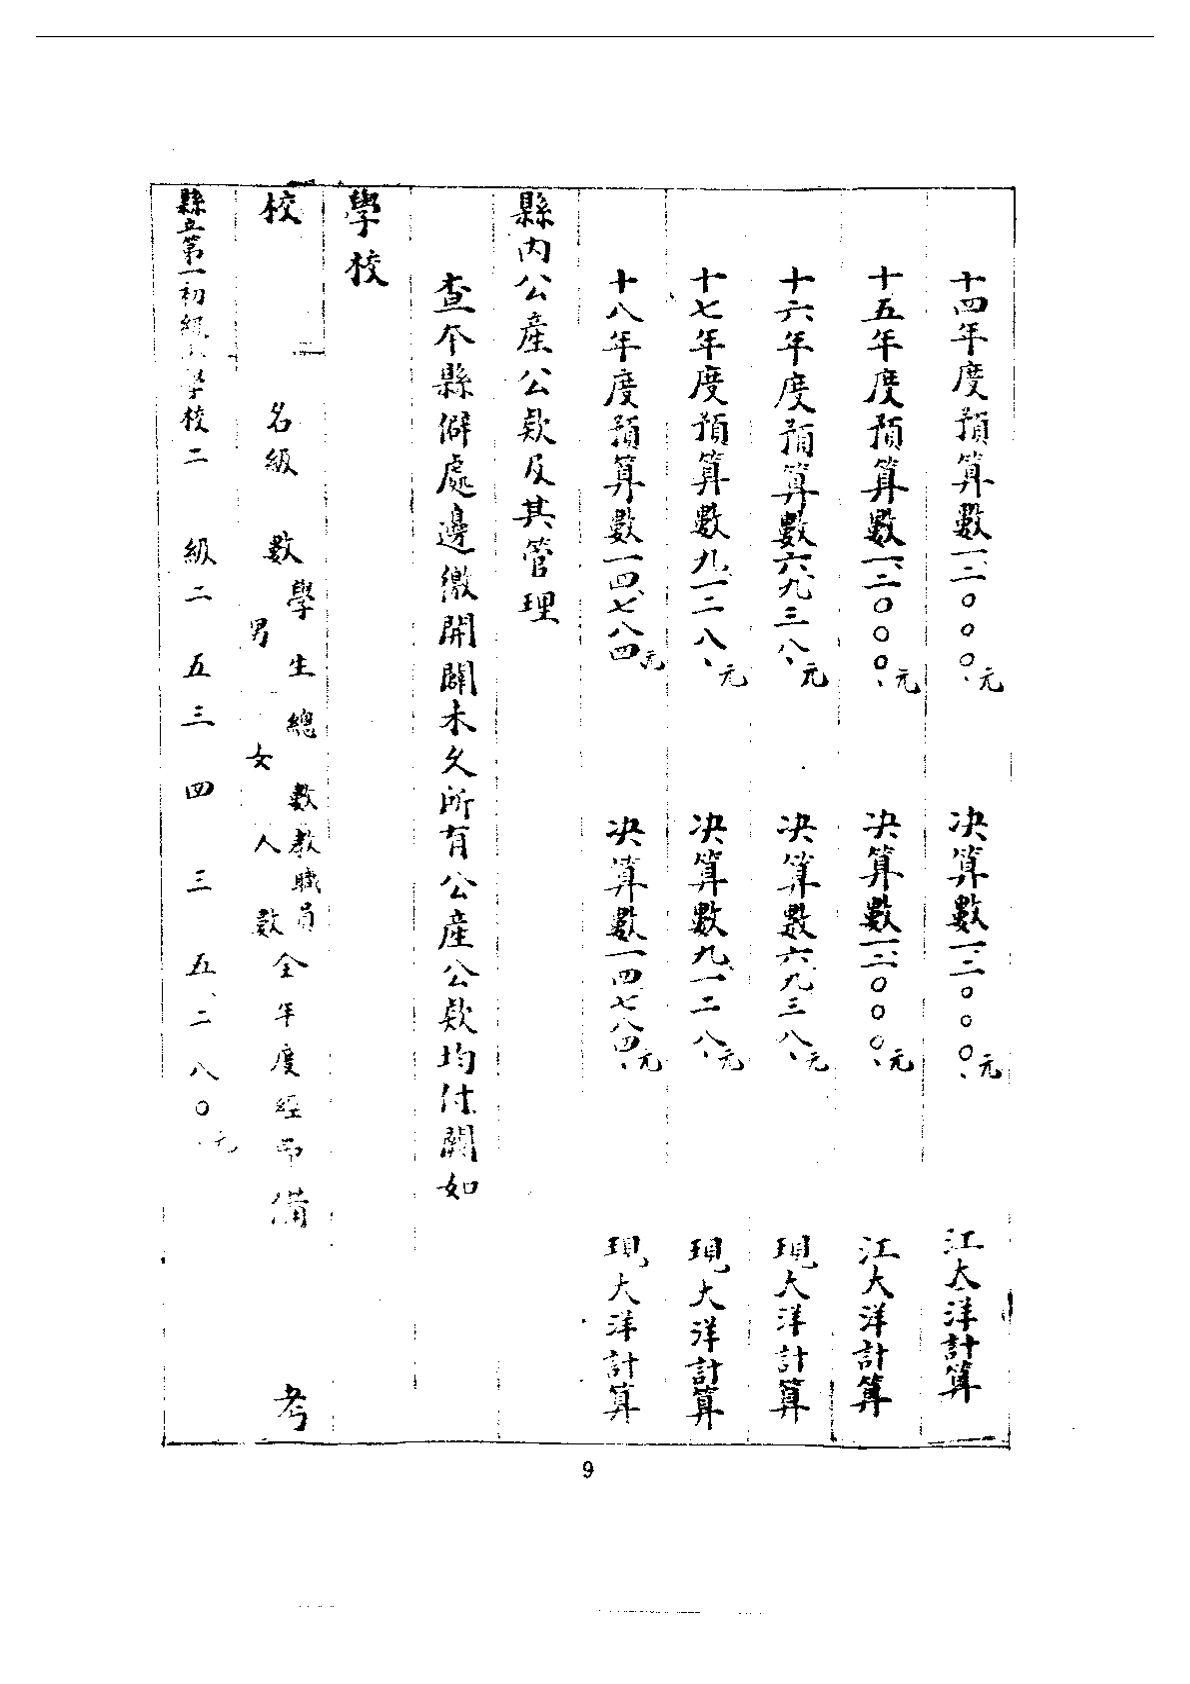 十四年度預算數一、二〇〇〇、元 決算數一、二〇〇〇、元 江大洋計算
十五年度預算數一、二〇〇〇、元 決算數一、二〇〇〇、元 江大洋計算
十六年度預算數六、九三八、元 決算數六、九三八、元 現大洋計算
十七年度預算數九、一二八、元 決算數九、一二八、元 現大洋計算
十八年度預算數一四、七八四元 決算數一四七八四、元 現大洋計算
縣內公產公款及其管理
查本縣僻處邊徼開闢未久所有公產公款均付闕如
學校
校名 級數 學生總數 男 女 教職員人數 全年度經 備考
縣立第一初級小學校 二級 二五三 四三 五、二八〇、元
9